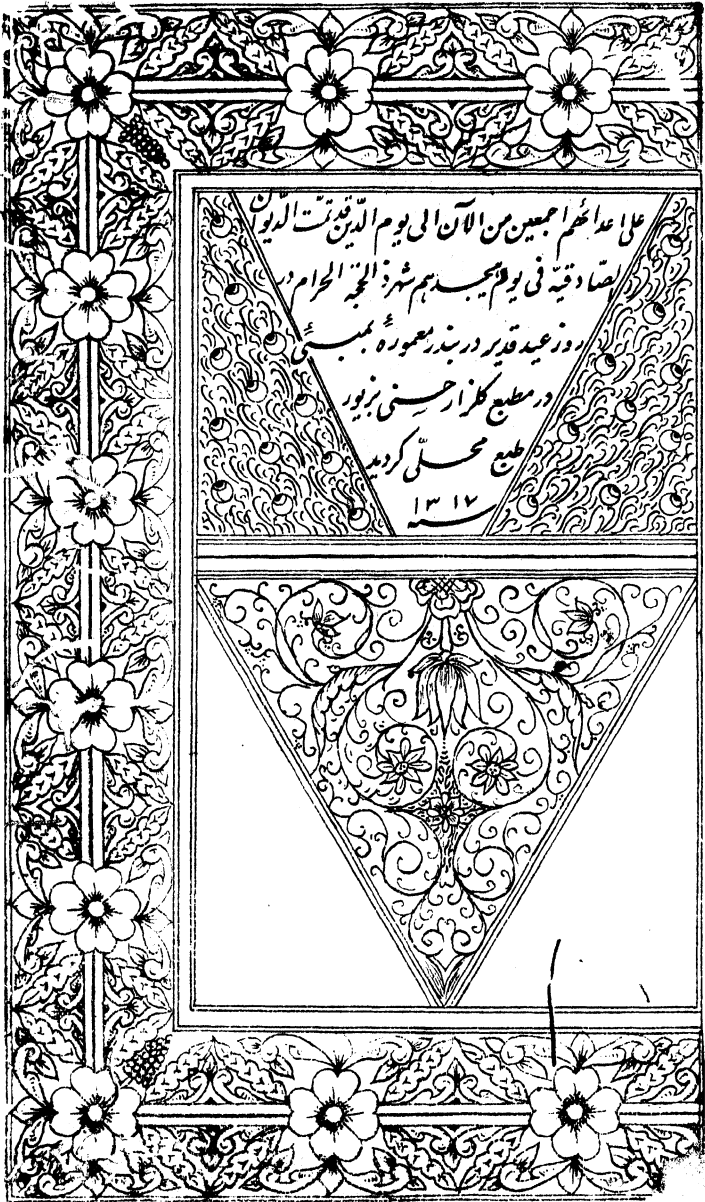 علی اعدائهم اجمعین من الآن الی یوم الدین قد تمّت الدیوان
الصّادقیّه فی یوم هیجدهم شهر ذالحجّه الحرام در
روز عید قدیر در بندر معمورهٔ بمبئی
در مطبع گلزار حسنی بزیور
طبع محلّی کردید
سنه ۱۳۱۷